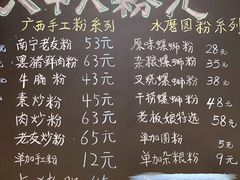 广西手工粉系列
南宁老友粉 53元
黑猪鲜肉粉 63元
牛腩粉 43元
素炒粉 45元
肉炒粉 63元
老友炒粉 63元
单加手工粉 12元
水磨圆粉系列
原味螺蛳粉 28元
杂粮螺蛳粉 35元
叉烧螺蛳粉 38元
干捞螺蛳粉 48元
老板娘特选 58元
单加圆粉 5元
单加杂粮粉 9元